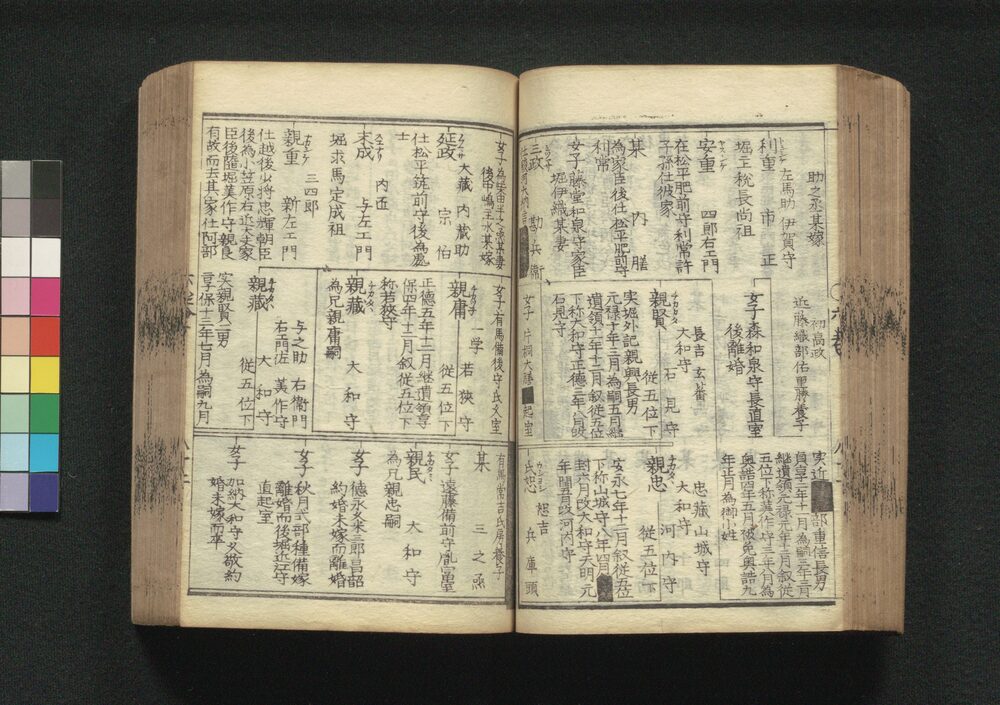 助之丞某嫁
左馬助 伊賀守
利重 市正
堀主税長尚祖
安重 四郎右エ門
在松平肥前守利常許
子孫仕彼家
某 内膳
為家臣後仕松平肥前守
利常
女子 藤堂和泉守家臣
堀伊織某妻
三政 勘兵衛
初高政
近藤織部佑重藤養子
女子 森和泉守長直室
後離婚
長吉 玄蕃
大和守 石見守
親賢 従五位下
実堀外記親興長男
元禄十年三月為嗣五月継
遺領十年十二月叙従五位
下称大和守正徳二年八月改
石見守
女子 片桐大膳
起室
部重信長男
貞享二年十一月為嗣三年三月
継遺領元禄元年十二月叙従
五位下称美作守三年八月為
奥詰四年五月被免奥詰九
年正月為御小姓
忠蔵 山城守
大和守 河内守
親忠 従五位下
安永七年十二月叙従五位
下称山城守八年四月
封六月改大和守天明元
年閏五月改河内守
氏忠 兵庫頭
後中嶋主水某嫁
大蔵 内蔵助
延政 宗伯
仕松平筑前守後為處
士
内匠
末成 与左エ門
堀求馬定成祖
三四郎
親重 新左エ門
仕越後少将忠輝朝臣
後為小笠原右近大夫家
臣後隨堀美作守親長
有故而去其家仕阿部
女子 有馬備後守氏久室
一学 若狭守
親庸 従五位下
正徳五年十二月継遺領享
保四年十二月叙従五位下
称若狭守
親蔵 大和守
為兄親庸嗣
与之助 右衛門
右エ門佐 美作守
大和守
親蔵 従五位下
実親賢二男
享保十三年七月為嗣九月
某 三之亟
女子 遠藤備前守胤富室
親民 大和守
為兄親忠嗣
女子 徳永冬三郎昌韶
約婚未嫁而離婚
女子 秋月式部種備嫁
離婚而後堀近江守
直起室
女子 加納大和守久敬約
婚未嫁而卒